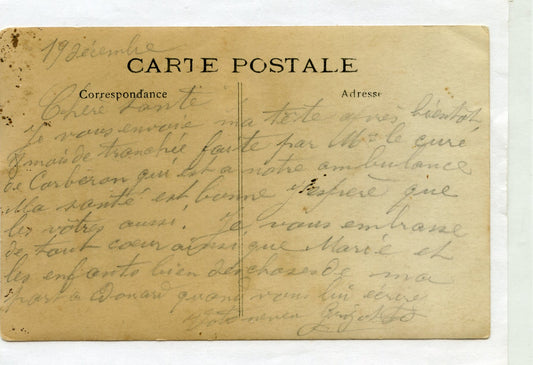 19 décembre
CARTE POSTALE
Correspondance
Adresse
Chère tante
Je vous envoie ma tête après bientôt
mois de tranchée faite par Mr le curé
de Corberon qui est a notre ambulance
Ma santé est bonne J'espère que
les vôtres aussi. Je vous embrasse
de tout coeur ainsi que Marie et
les enfants bien des choses de ma
part a Edouard quand vous lui écrirez
Votre neveu